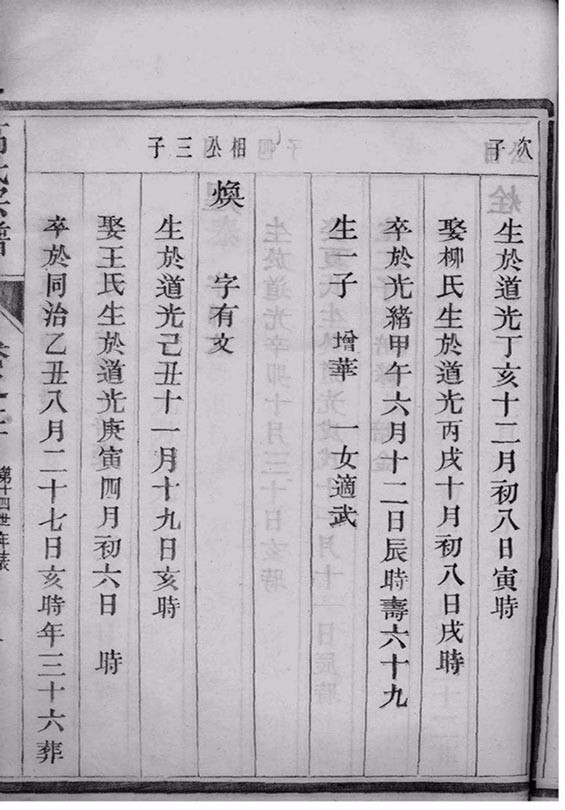 次子
生於道光丁亥十二月初八日寅時
娶柳氏生於道光丙戌十月初八日戌時
卒於光緒甲午六月十二日辰時壽六十九
生一子 增華 一女適武
相公三子
煥 字有文
生於道光己丑十一月十九日亥時
娶王氏生於道光庚寅四月初六日 時
卒於同治乙丑八月二十七日亥時年三十六葬
第十四世年表